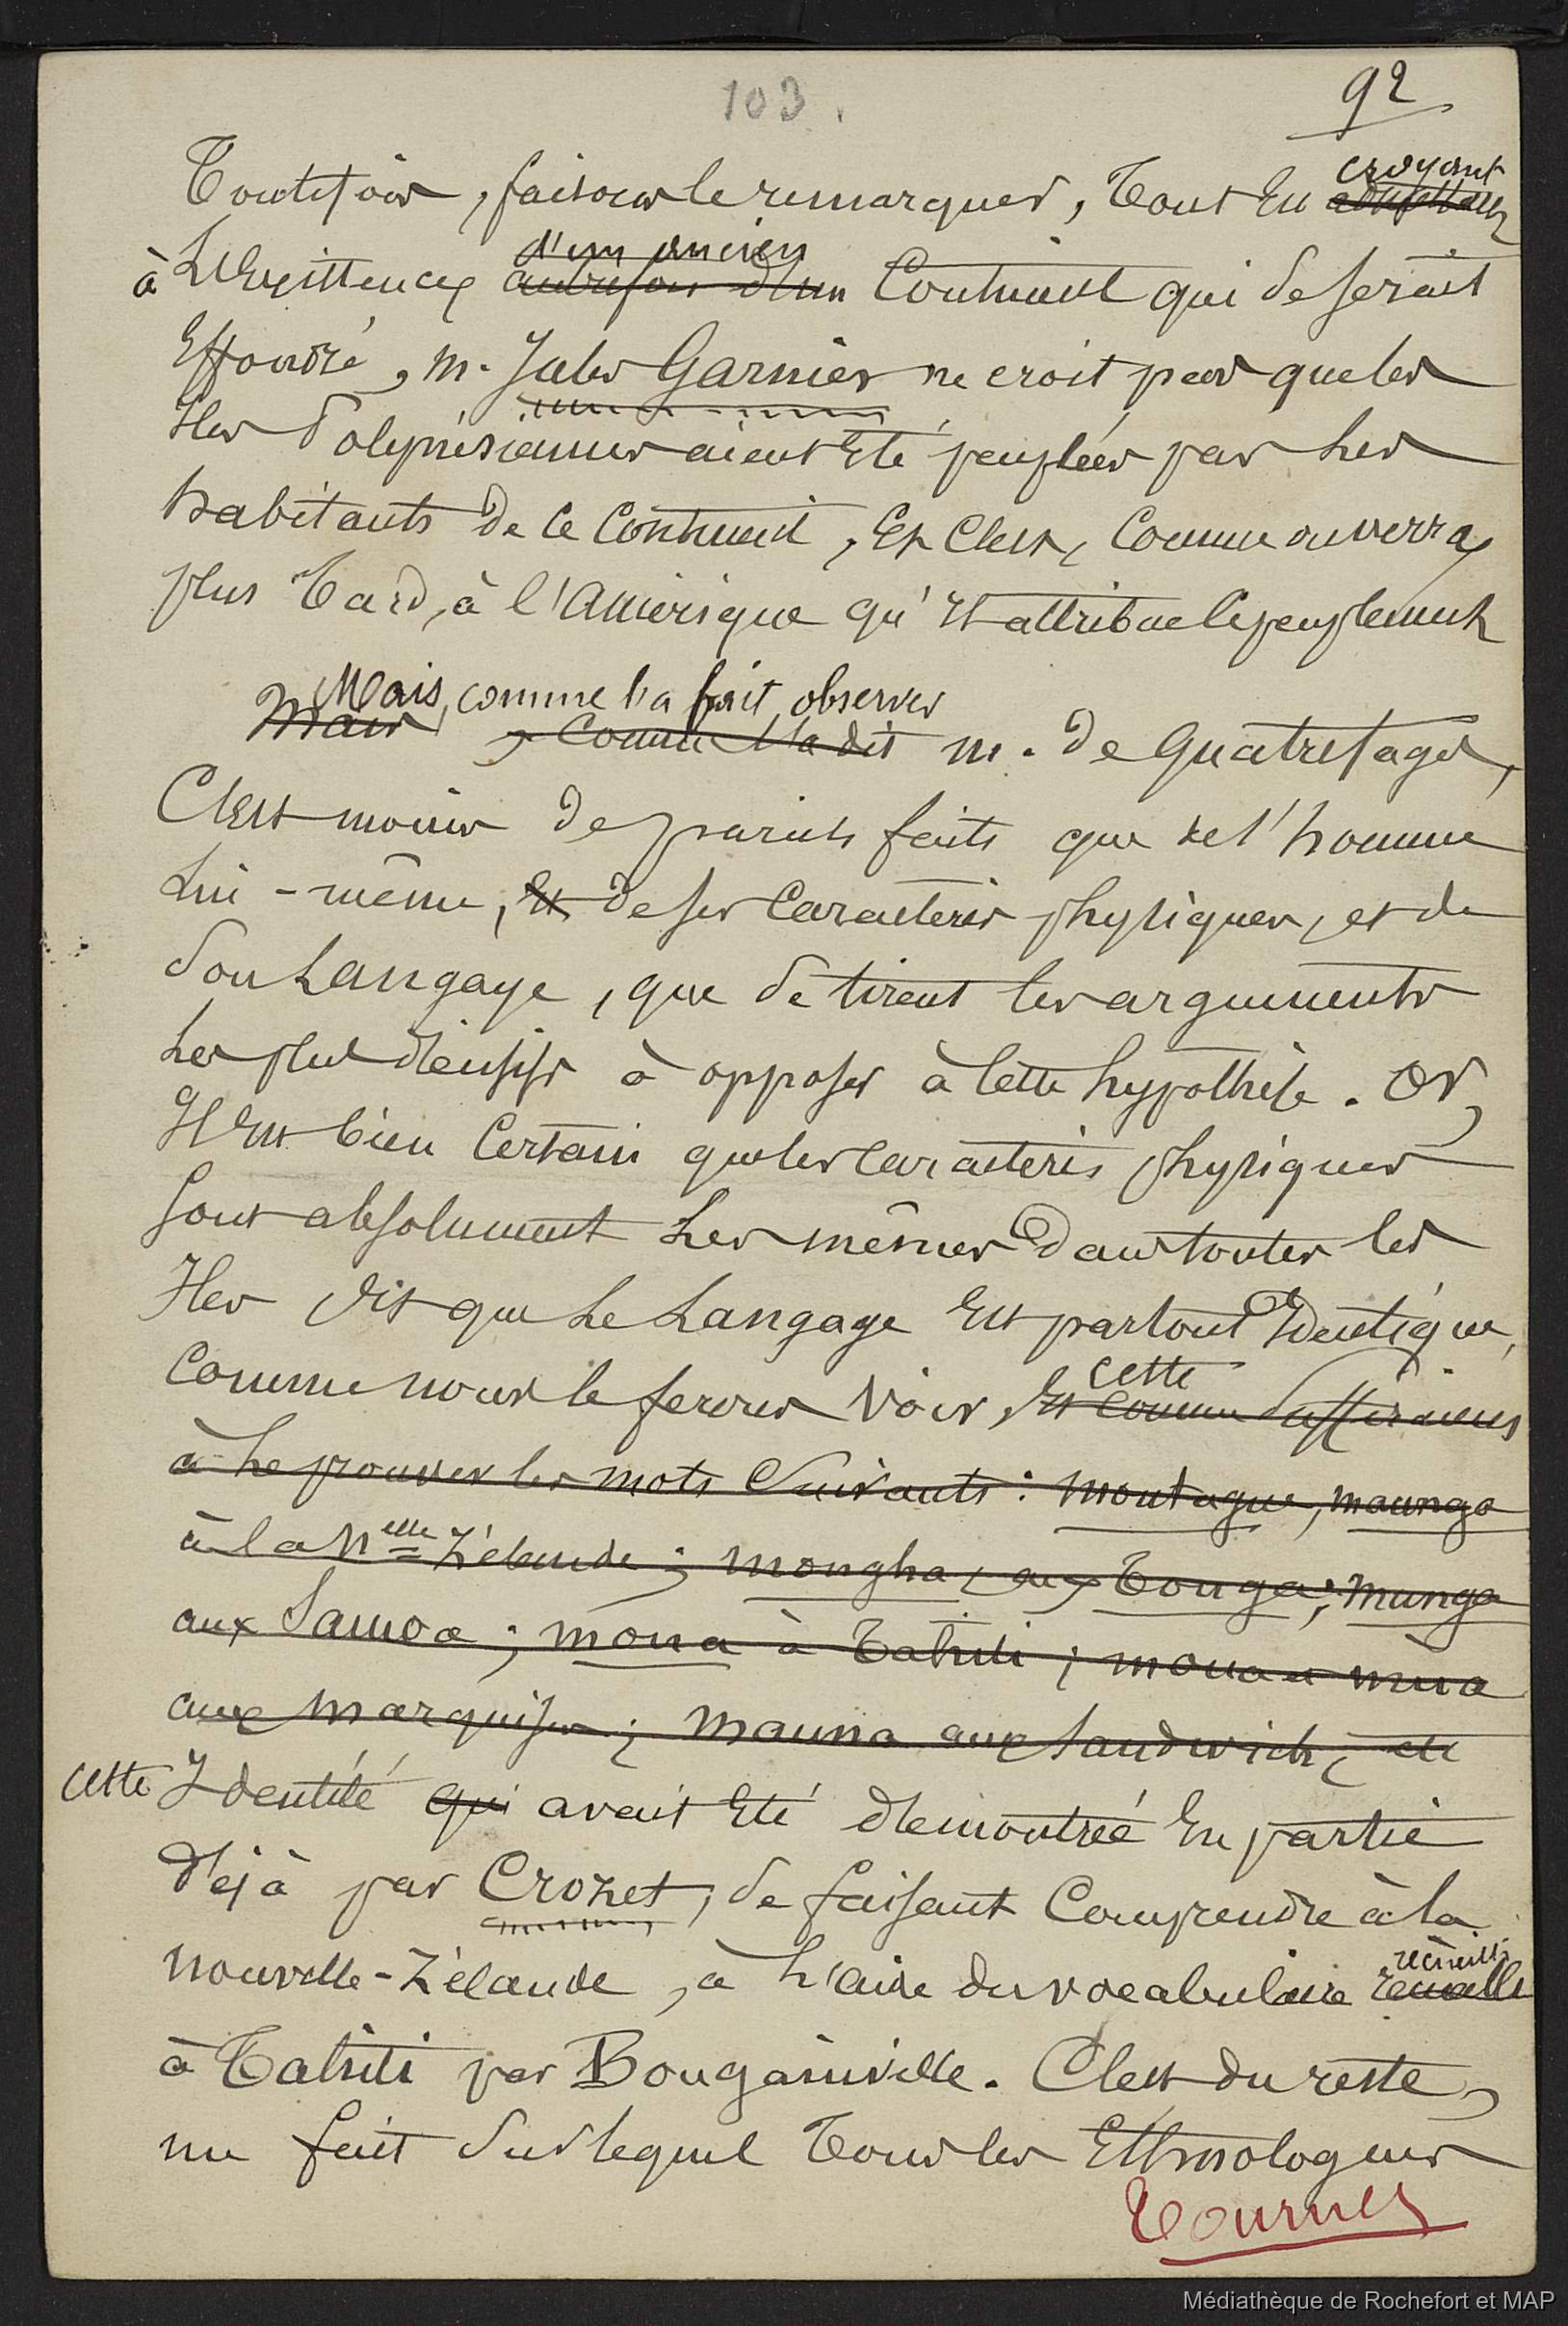 103.
92
croyant
Toutefois, faisons le remarquer, tout en admettant
d'un ancien
à l'existence autrefois d'un Continent qui se serait
effondré, M. Jules Garnier ne croit pas que les
Iles Polynésiennes aient été peuplées par les
habitants de ce Continent, et c'est, comme on verra
plus tard, à l'Amérique qu'il attribue le peuplement
Mais, comme l'a fait observer
Mais, comme l'a dit M. de Quatrefages,
C'est moins de pareils faits que de l'homme
lui-même, et de ses caractères physiques, et de
son langage, que se tirent les arguments
les plus décisifs à opposer à cette hypothèse. Or,
Il est bien certain que les caractères physiques
sont absolument les mêmes dans toutes les
Iles et que le langage est partout identique,
cette
comme nous le ferons voir, et comme suffiraient
à le prouver les mots suivants : montagne, maunga
à la Nelle Zélande ; mongha, aux Tonga ; munga
aux Samoa ; moua à Tahiti ; moua et mua
aux Marquises ; mauna aux Sandwich, etc
cette Identité qui avait été démontrée en partie
déjà par Crozet, se faisant comprendre à la
recueilli
nouvelle-Zélande, à l'aide du vocabulaire recueilli
à Tahiti par Bougainville. C'est du reste,
un fait sur lequel tous les Ethnologues
Tournez
Médiathèque de Rochefort et MAP